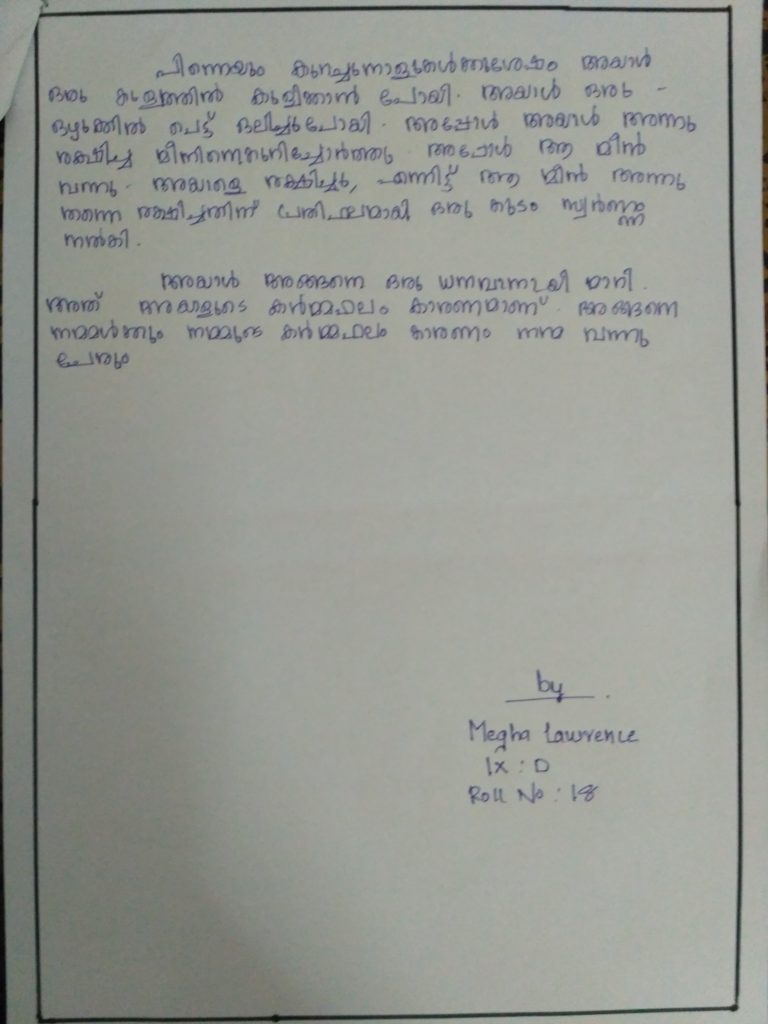 പിന്നെയും കുറച്ചുനാളുകൾക്കുശേഷം അയാൾ
ഒരു കുളത്തിൽ കുളിക്കാൻ പോയി. അയാൾ ഒരു -
ഒഴുക്കിൽ പെട്ട് ഒലിച്ചുപോയി. അപ്പോൾ അയാൾ അന്നു
രക്ഷിച്ച മീനിനെക്കുറിച്ചോർത്തു. അപ്പോൾ ആ മീൻ
വന്നു. അയാളെ രക്ഷിച്ചു, എന്നിട്ട് ആ മീൻ അന്നു
തന്നെ രക്ഷിച്ചതിന് പ്രതിഫലമായി ഒരു കുടം സ്വർണ്ണം
നൽകി.
അയാൾ അങ്ങനെ ഒരു ധനവാനായി മാറി.
അത് അയാളുടെ കർമ്മഫലം കാരണമാണ്. അങ്ങനെ
നമ്മൾക്കും നമ്മുടെ കർമ്മഫലം കാരണം നന്മ വന്നു
ചേരും
by
Megha Lawrence
IX : D
Roll No : 18